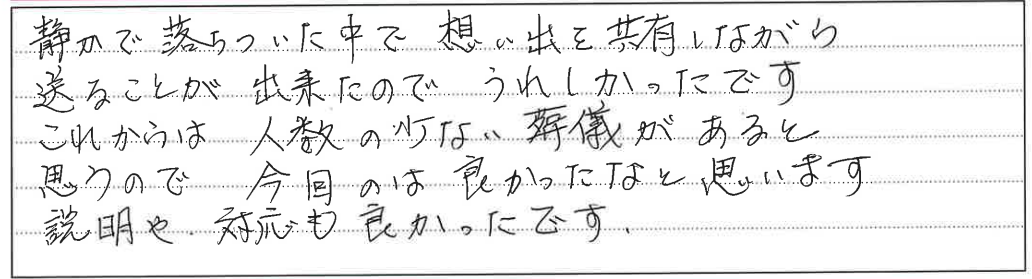 静かで落ちついた中で 想い出を共有しながら
送ることが 出来たので うれしかったです
これからは 人数の少ない葬儀があると
思うので 今回のは良かったなと思います
説明や、対応も良かったです.